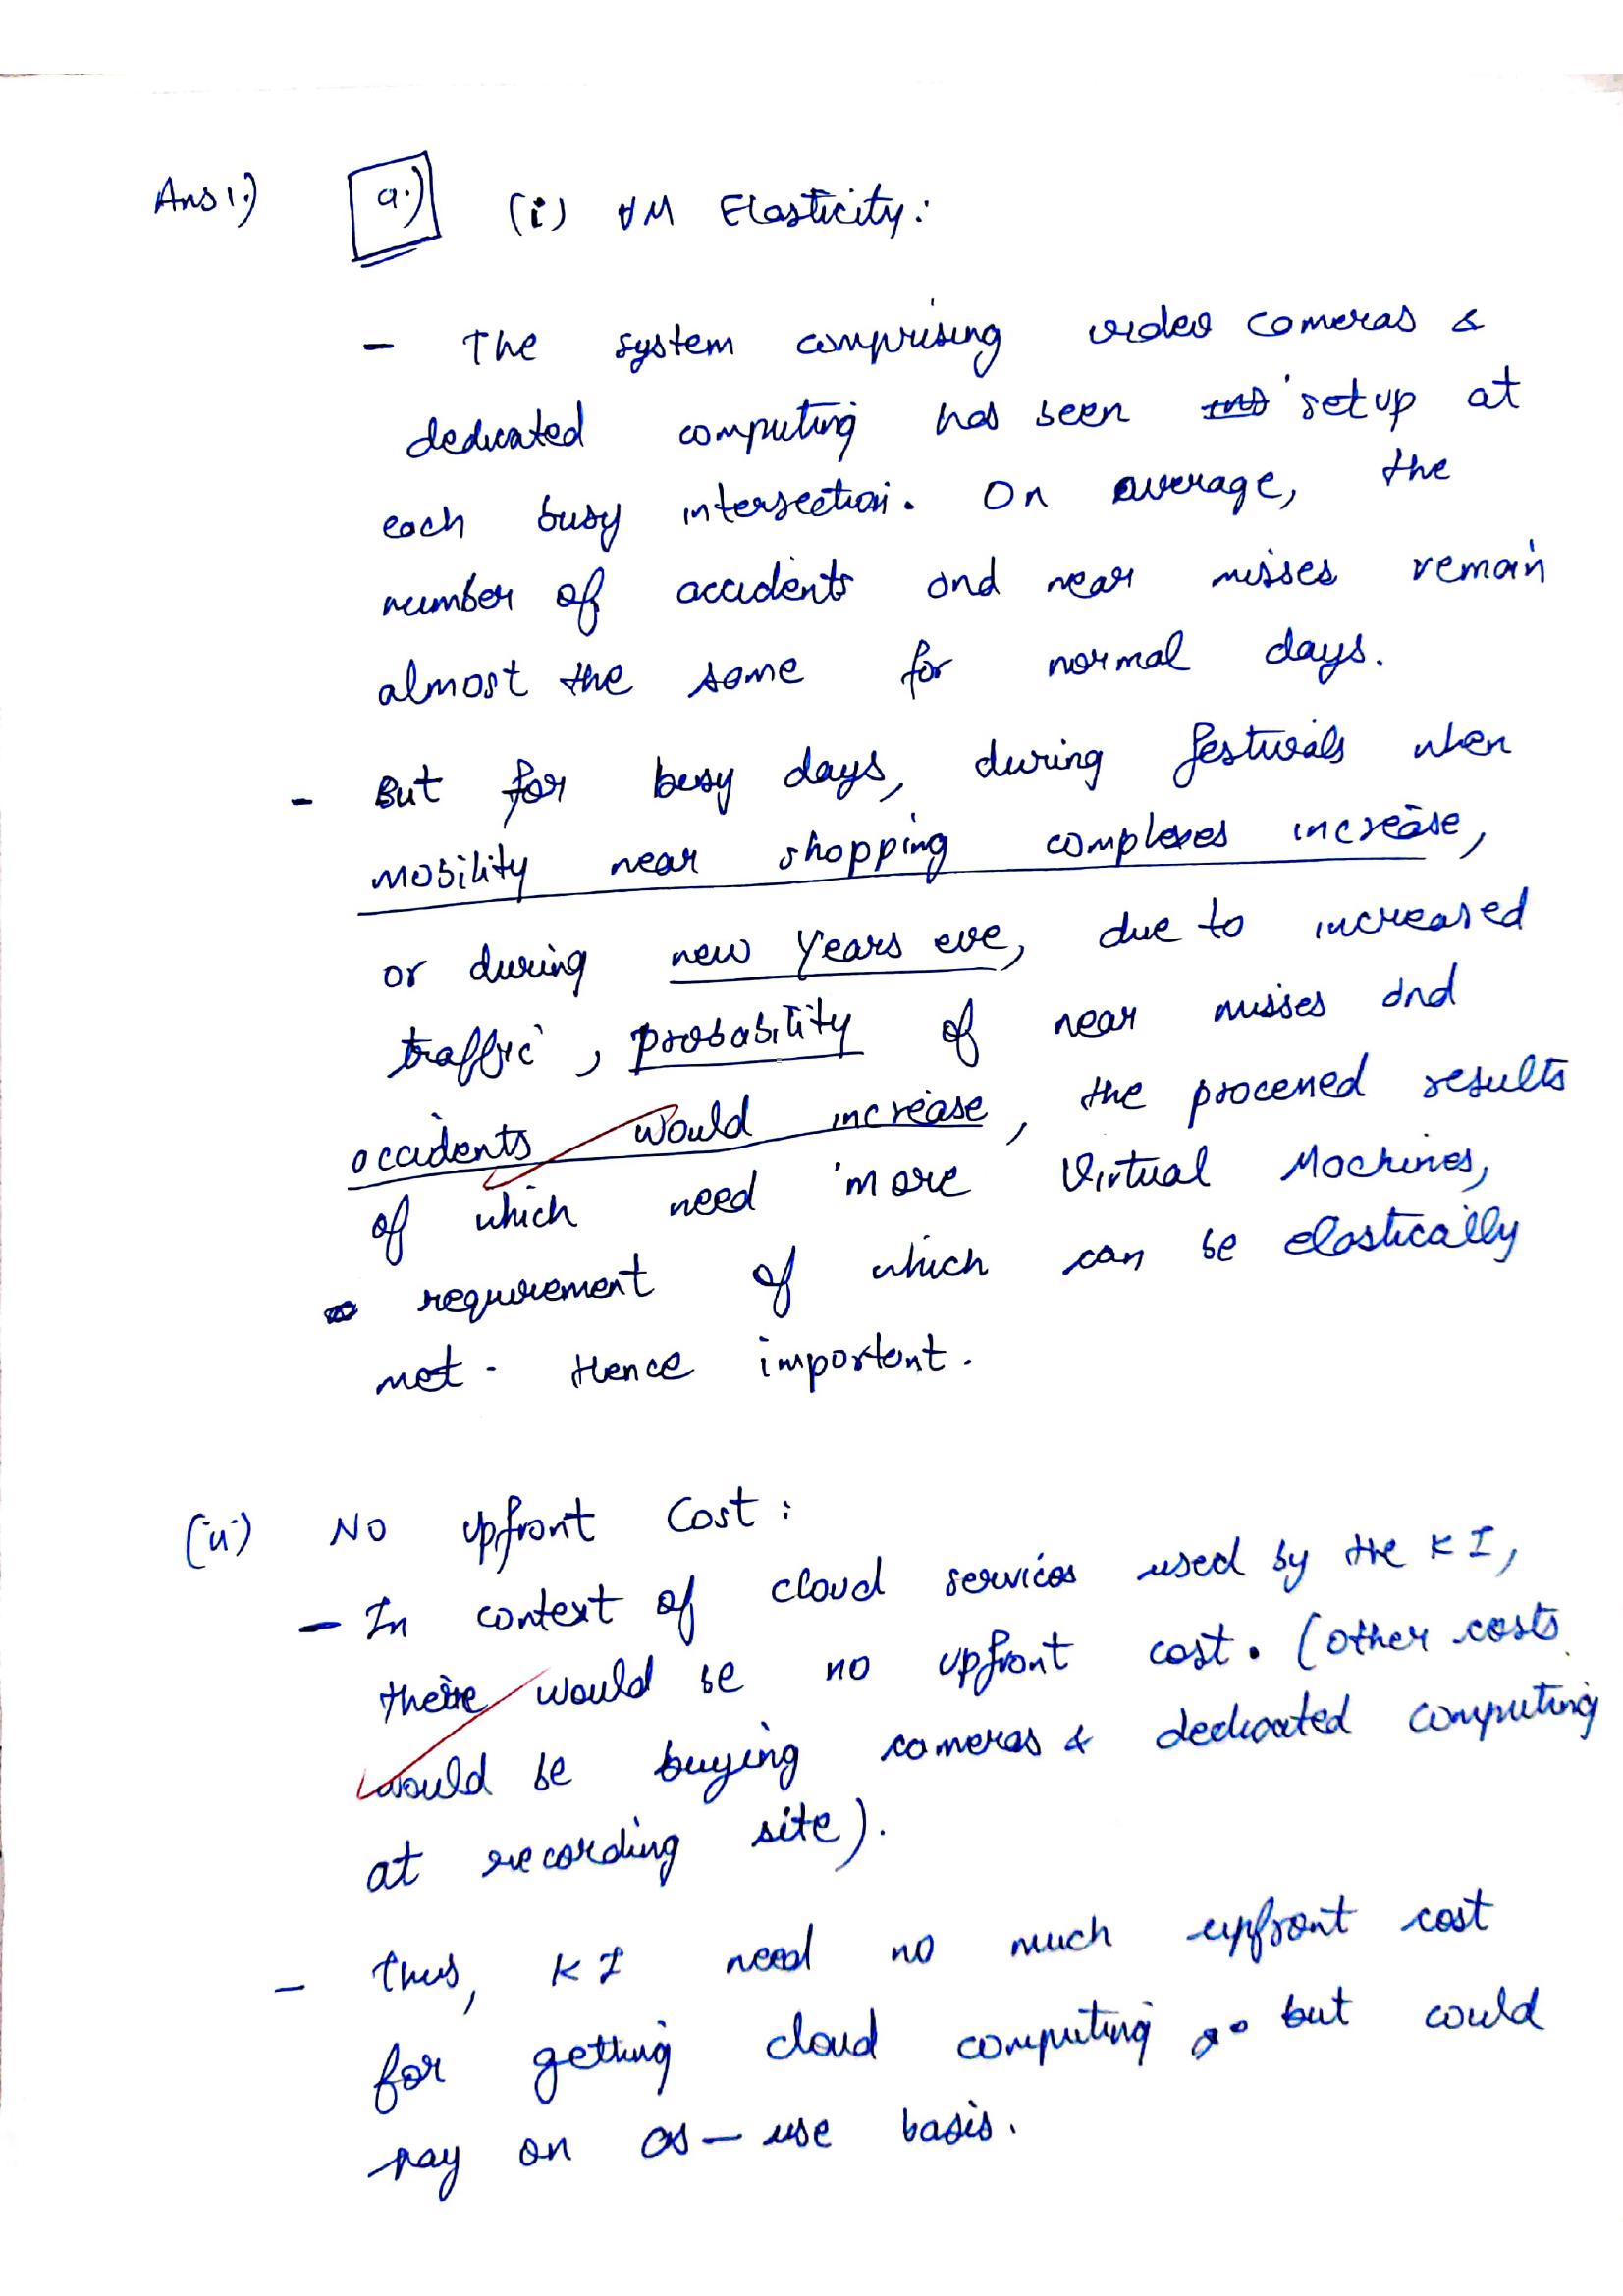 Ans 1.) a.) (i) VM Elasticity:
- The system comprising video cameras &
dedicated computing has been setup at
each busy intersection. On average, the
number of accidents and near misses remain
almost the same for normal days.
- But for busy days, during festivals when
mobility near shopping complexes increase,
or during new years eve, due to increased
traffic, probability of near misses and
accidents would increase, the processed results
of which need more Virtual Machines,
requirement of which can be elastically
met. Hence important.
(ii) No upfront Cost:
- In context of cloud services used by the KI,
there would be no upfront cost. (other costs
would be buying cameras & dedicated computing
at recording site).
- Thus, KI need no much upfront cost
for getting cloud computing but could
pay on as-use basis.